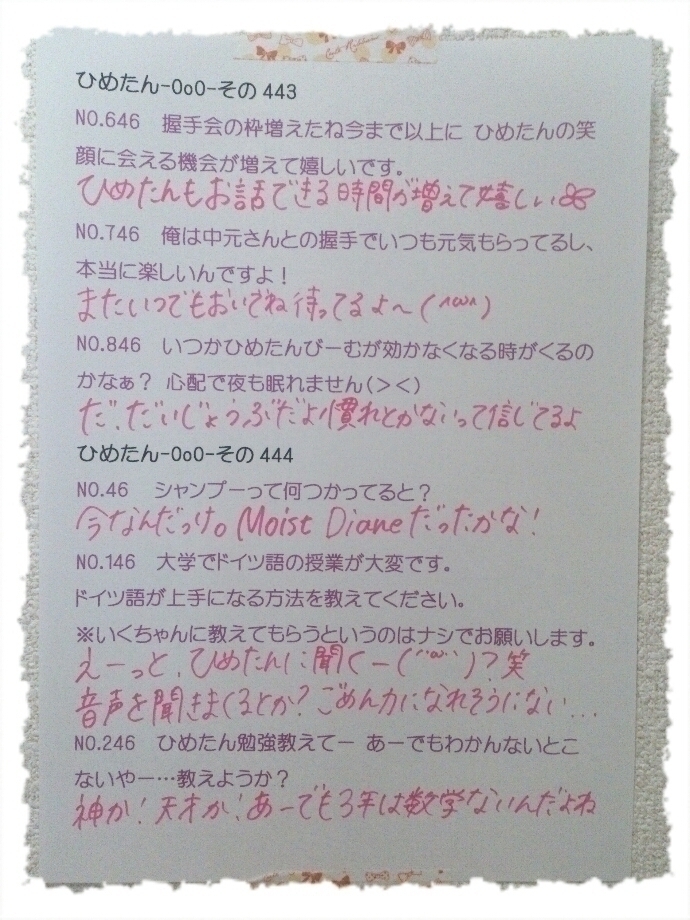 ひめたん-OoO-その443
NO.646　握手会の枠増えたね今まで以上に ひめたんの笑
顔に会える機会が増えて嬉しいです。
ひめたんもお話できる時間が増えて嬉しい
NO.746　俺は中元さんとの握手でいつも元気もらってるし、
本当に楽しいんですよ！
またいつでもおいでね待ってるよ〜(^ω^)
NO.846　いつかひめたんびーむが効かなくなる時がくるの
かなぁ？ 心配で夜も眠れません(＞＜)
だ、だいじょうぶだよ！慣れとかないって信じてるよ
ひめたん-OoO-その444
NO.46　シャンプーって何つかってると？
今なんだっけ。Moist Dianeだったかな！
NO.146　大学でドイツ語の授業が大変です。
ドイツ語が上手になる方法を教えてください。
※いくちゃんに教えてもらうというのはナシでお願いします。
えーっと、ひめたんに聞くー(´ω`)？笑
音声を聞きまくるとか？ごめん力になれそうにない...
NO.246　ひめたん勉強教えてー あーでもわかんないとこ
ないやー…教えようか？
神か！天才か！あーでも3年は数学ないんだよね